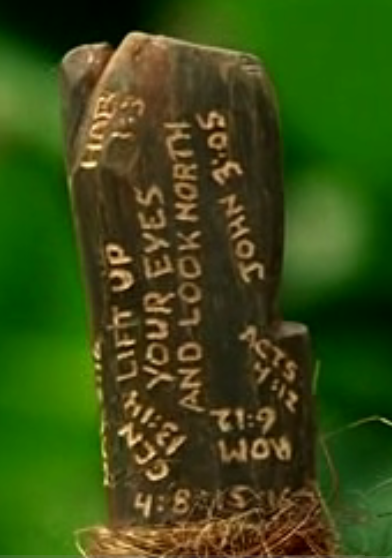 HAB
1:5
LIFT UP
YOUR EYES
AND LOOK NORTH
GEN
13:14
JOHN 3:05
ACTS
4:12
ROM
6:12
4:8:15:16